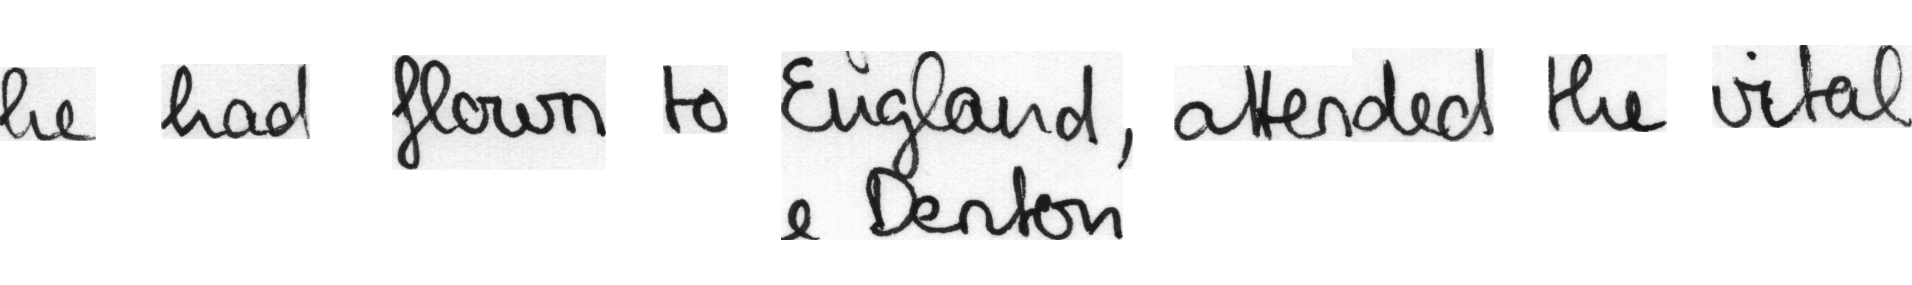 he had flown to England, attended the vital
e Denton